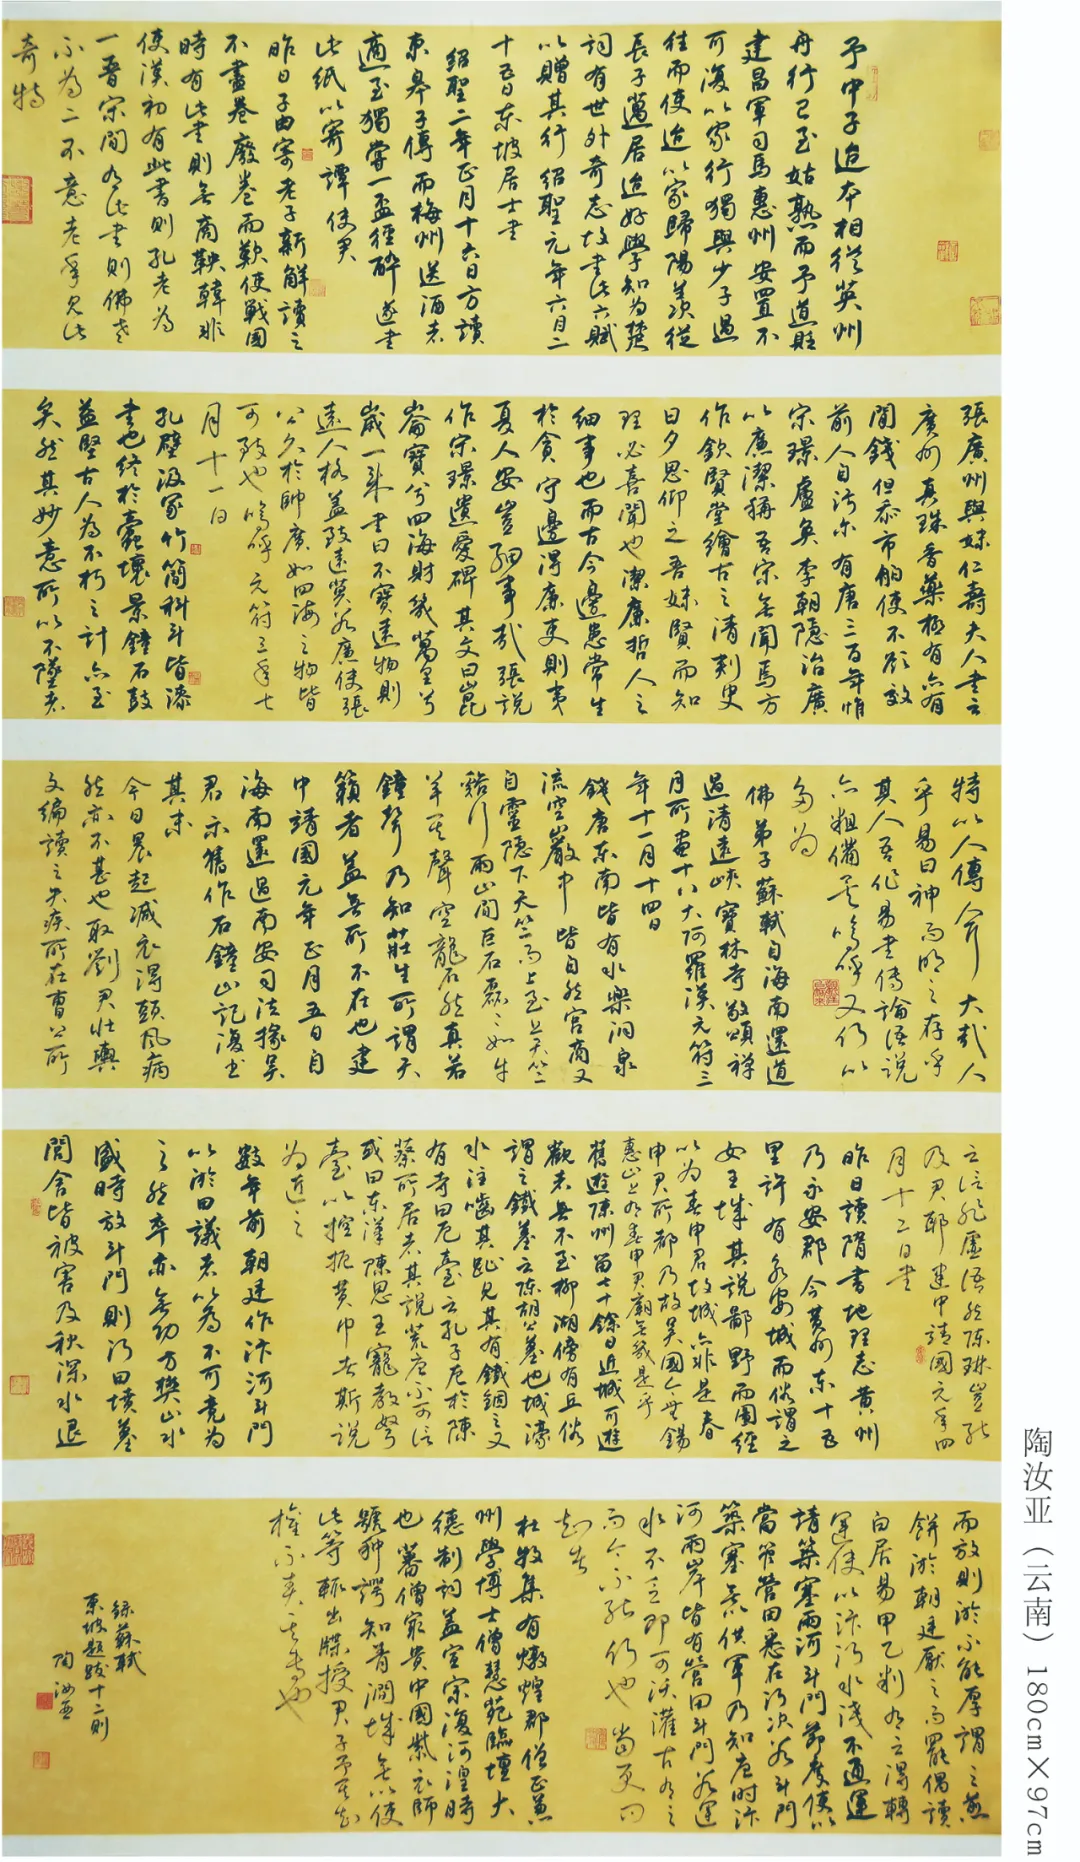 予中子迨本相從英州
舟行已至姑熟而予道貶
建昌軍司馬惠州安置不
可復以家行獨與少子過
往而使迨以家歸陽羨從
長子邁居迨好學知為楚
詞有世外奇志故書此六賦
以贈其行紹聖元年六月二
十五日東坡居士書
紹聖二年正月十六日方讀
東皋子傳而梅州送酒者
適至獨嘗一盃徑醉遂書
此紙以寄譚使君
昨日子由寄老子新解讀之
不盡卷廢卷而歎使戰國
時有此書則無商鞅韓非
使漢初有此書則孔老為
一晉宋間有此書則佛老
不為二不意老年見此
奇特
張廣州與妹仁壽夫人書云
廣州真珠香藥極有亦有
閒錢但忝市舶使不欲效
前人自污爾有唐三百年惟
宋璟盧奐李朝隱治廣
以廉潔稱吾宗無聞焉方
作欽賢堂繪古之清刺史
日夕思仰之吾妹賢而知
理必喜聞也潔廉哲人之
細事也而古今邊患常生
於貪守邊得廉吏則夷
夏人安豈細事哉張說
作宋璟遺愛碑其文曰崑
崙寶兮四海財幾萬里兮
歲一來書曰不寶遠物則
遠人格蓋致遠莫若廉使張
公久於帥廣如四海之物皆
可致也嗚呼元符三年七
月十一日
孔壁汲冢竹簡科斗皆漆
書也終於蠹壞景鐘石鼓
益堅古人為不朽之計亦至
矣然其妙意所以不墜者
特以人傳人爾大哉人
乎易曰神而明之存乎
其人吾作易書傳論語說
亦粗備矣嗚呼又何以
多為
佛弟子蘇軾自海南還道
過清遠峽寶林寺敬頌禪
月所畫十八大阿羅漢元符三
年十一月十四日
錢唐東南皆有水樂洞泉
流空巖中皆自然宮商又
自靈隱下天竺而上至上天竺
谿行兩山間巨石磊磊如牛
羊其聲空礱然真若
鐘聲乃知莊生所謂天
籟者蓋無所不在也建
中靖國元年正月五日自
海南還過南安司法掾吳
君示舊作石鐘山記復書
其末
今日晨起減衣得頭風病
然亦不甚也取劉君壯輿
文編讀之失疾所在曹公所
云信非虛語然陳琳豈能
及君耶建中靖國元年四
月十二日書
昨日讀隋書地理志黃州
乃永安郡今黃州東十五
里許有永安城而俗謂之
女王城其說鄙野而圖經
以為春申君故城亦非是春
申君所都乃故吳國今無錫
惠山上有春申君廟無幾是乎
舊遊陳州留七十餘日近城可遊
觀者無不至柳湖傍有丘俗
謂之鐵墓云陳胡公墓也城濠
水注嚙其趾見其有鐵錮之又
有寺曰厄臺云孔子厄於陳
蔡所居者其說荒唐不可信
或曰東漢陳思王寵教弩
臺以控扼黃巾者斯說
為近之
數年前朝廷作汴河斗門
以淤田議者以為不可竟為
之然卒亦無功方樊山水
盛時放斗門則河田墳墓
閭舍皆被害及秋深水退
而放則淤不能厚謂之蒸
餅淤朝廷厭之而罷偶讀
白居易甲乙判有云得轉
運使以汴河水淺不通運
請築塞兩河斗門節度使以
當管營田悉在河次若斗門
築塞無以供軍乃知唐時汴
河兩岸皆有營田斗門若運
水不乏即可沃灌古有之
而今不能何也當更問
知者
杜牧集有燉煌郡僧正兼
州學博士僧慧苑臨壇大
德制詞蓋宣宗復河湟時
也蕃僧最貴中國紫衣師
號种諤知青澗城無以使
此等輒出牒授君子予其知
權不責其專也
錄蘇軾
東坡題跋十二則
陶汝亞
陶汝亚（云南）180cm×97cm